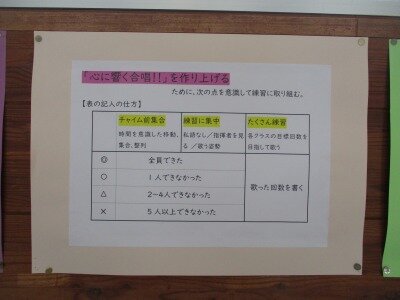 「心に響く合唱!!」を作り上げる
ために、次の点を意識して練習に取り組む。
【表の記入の仕方】
チャイム前集合 練習に集中 たくさん練習
時間を意識した移動、 私語なし/指揮者を見 各クラスの目標回数を
集合、整列 る /歌う姿勢 目指して歌う
◎ 全員できた
○ 1人できなかった
△ 2~4人できなかった
× 5人以上できなかった
歌った回数を書く